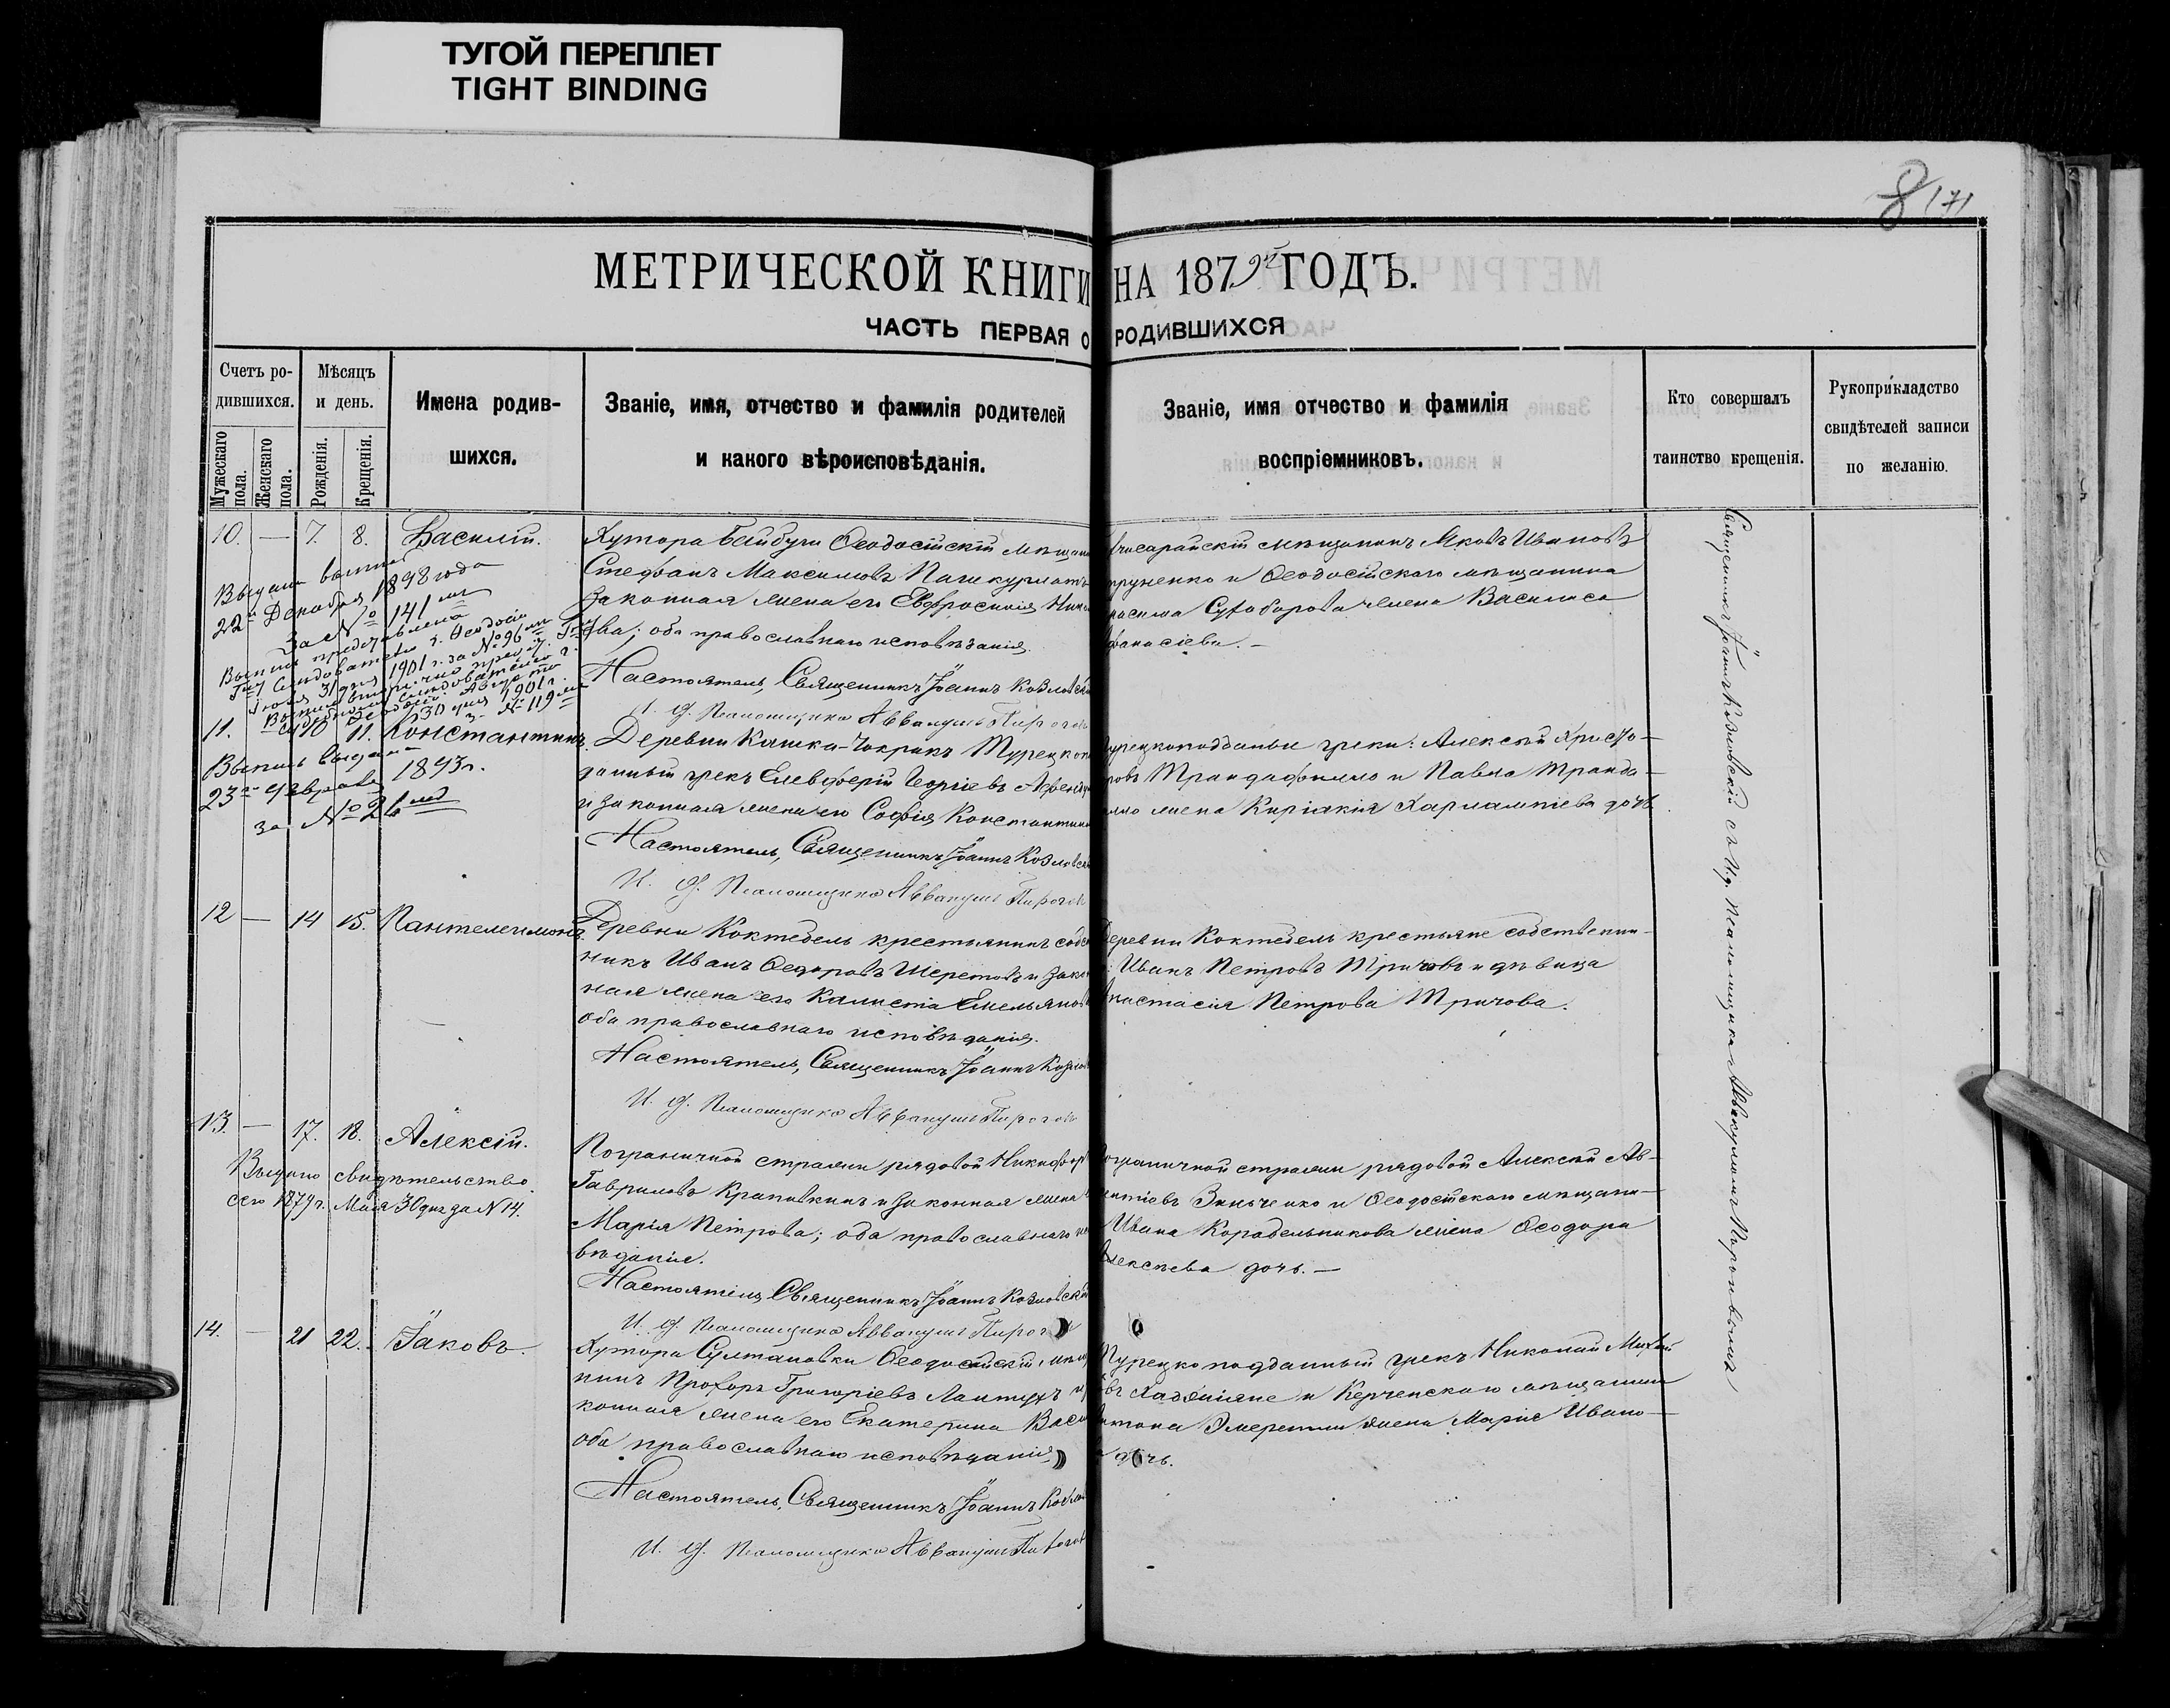 ТУГОЙ ПЕРЕПЛЕТ
TIGHT BINDING
8 171
МЕТРИЧЕСКОЙ КНИГИ НА 1879й ГОДЪ.
ЧАСТЬ ПЕРВАЯ О РОДИВШИХСЯ
Счетъ ро-
дившихся.
Мужескаго пола.
Женскаго пола.
Мѣсяцъ
и день.
Рожденія.
Крещенія.
Имена родив-
шихся.
Званіе, имя, отчество и фамилія родителей
и какого вѣроисповѣданія.
Званіе, имя отчество и фамилія
воспріемниковъ.
Кто совершалъ
таинство крещенія.
Рукоприкладство
свидѣтелей записи
по желанію.
10. — 7. 8. Василій.
Выдана выпись
22го Декабря 1898 года
за № 141мъ
Выпись представлена
г. Ѳеодосіи
1901 г. за № 96мъ
1901 г.
№ 119мъ
Хутора Байбуги Ѳеодосійскій мѣщан
Стефанъ Максимовъ
законная жена его Евфросинія
ва; оба православнаго исповѣданія.
Настоятель, Священникъ Іоаннъ Козловскі
И. д. Псаломщика Аввакумъ Пирогов
мѣщанинъ Яковъ Ивановъ
и Ѳеодосійскаго мѣщанина
жена Василиса
фанасіева. —
11. — 10 11. Константинъ.
Выпись выдана
23го Февраля 1893 г.
за № 26мъ
Деревни Кашка-Чокракъ Турецкопод
данный грекъ Елевферій Георгіевъ
и законная жена его Софія Константин
Настоятель, Священникъ Іоаннъ Козловск
И. д. Псаломщика Аввакумъ Пирогов
урецкоподданые греки: Алексѣй Христо-
ровъ Трандафилло и Павла Транда-
илло жена Киріакія Харлампіева дочь.
12 — 14 15. Пантелеимонъ.
Деревни Коктебель крестьянинъ собс
никъ Иванъ Ѳедоровъ и зако
ная жена его Емельянов
оба православнаго исповѣданія.
Настоятель, Священникъ Іоаннъ Козлов
И. д. Псаломщика Аввакумъ Пирогов
Деревни Коктебель крестьяне собственни-
Иванъ Петровъ Тричовъ и дѣвица
Анастасія Петрова Тричова.
13. — 17. 18. Алексій.
Выдано свидѣтельство
сего 1879 г. Мая 30 дня за № 14.
Пограничной стражи рядовой Никифоръ
Гавриловъ Крапивкинъ и законная жена
Марія Петрова; оба православнаго испо
вѣданія.
Настоятель, Священникъ Іоаннъ Козловскі
И. д. Псаломщика Аввакумъ Пирогов
ограничной стражи рядовой Алексѣй Ав-
Зинченко и Ѳеодосійскаго мѣщани-
Ивана Корабельникова жена Ѳеодора
Алексѣева дочь. —
14. — 21 22. Іаковъ.
Хутора Султановки Ѳеодосійскій мѣщ
нинъ Прохоръ Григоріевъ
конная жена его Екатерина Васи
оба православнаго исповѣданія.
Настоятель, Священникъ Іоаннъ Козлов
И. д. Псаломщика Аввакумъ Пирогов
Турецкоподданный грекъ Николай
и Керченскаго мѣщанина
Антона жена Марія Ивано-
дочь.
Священникъ Іоаннъ Козловскій съ И. д. Псаломщика Аввакумомъ Пироговымъ